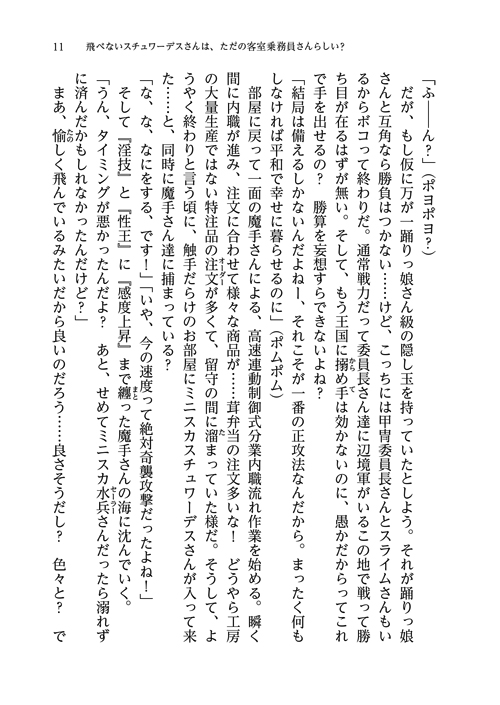 11　飛べないスチュワーデスさんは、ただの客室乗務員さんらしい？
「ふ――ん？」（ポヨポヨ？）
　だが、もし仮に万が一踊りっ娘さん級の隠し玉を持っていたとしよう。それが踊りっ娘
さんと互角なら勝負はつかない……けど、こっちには甲冑委員長さんとスライムさんもい
るからボコって終わりだ。通常戦力だって委員長さん達に辺境軍がいるこの地で戦って勝
ち目が在るはずが無い。そして、もう王国に搦め手は効かないのに、愚かだからってこれ
で手を出せるの？　勝算を妄想すらできないよね？
「結局は備えるしかないんだよねー、それこそが一番の正攻法なんだから。まったく何も
しなければ平和で幸せに暮らせるのに」（ポムポム）
　部屋に戻って一面の魔手さんによる、高速連動制御式分業内職流れ作業を始める。瞬く
間に内職が進み、注文に合わせて様々な商品が……茸弁当の注文多いな！　どうやら工房
の大量生産ではない特注品の注文が多くて、留守の間に溜まっていた様だ。そうして、よ
うやく終わりと言う頃に、触手だらけのお部屋にミニスカスチュワーデスさんが入って来
た……と、同時に魔手さん達に捕まっている？
「な、な、なにをする、です！」「いや、今の速度って絶対奇襲攻撃だったよね！」
　そして『淫技』と『性王』に『感度上昇』まで纏った魔手さんの海に沈んでいく。
「うん、タイミングが悪かったんだよ？　あと、せめてミニスカ水兵さんだったら溺れず
に済んだかもしれなかったんだけど？」
　まあ、愉しく飛んでいるみたいだから良いのだろう……良さそうだし？　色々と？　で